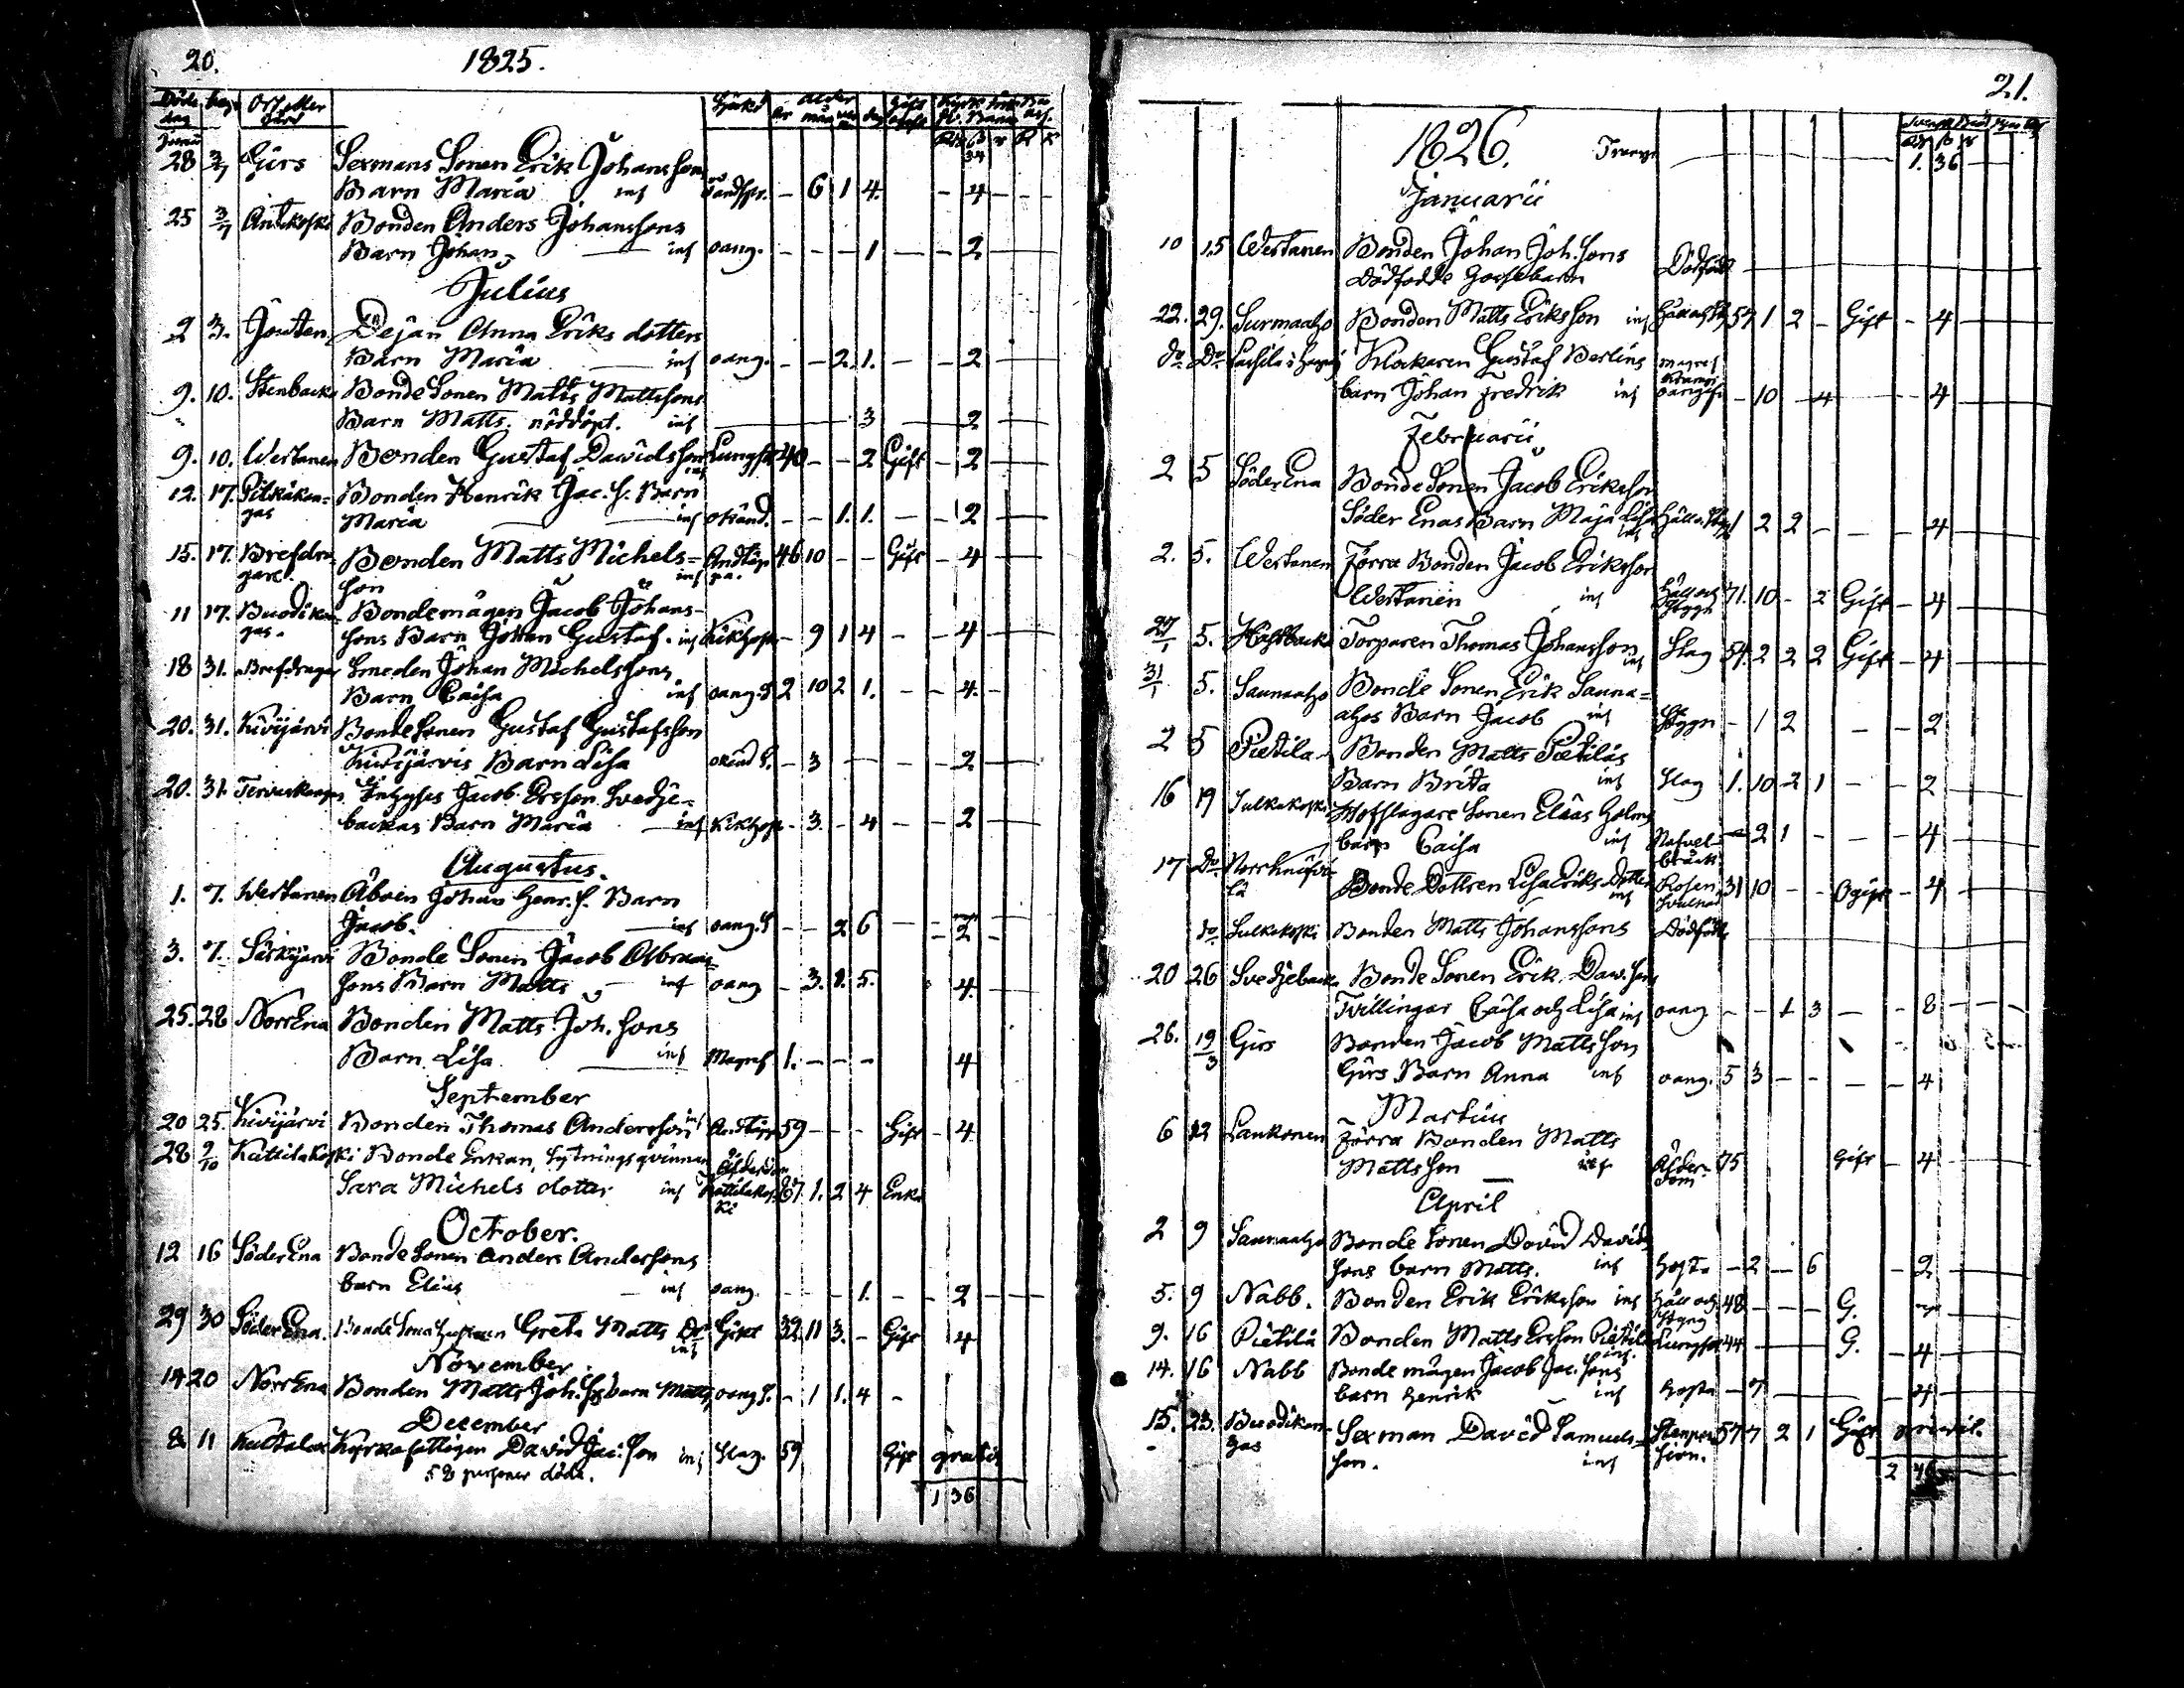 20.
1825.
Junii
28 3/7 Gürs Sexmans Sonen Erik Johanssons
Barn Maria inf - 6 1 4. - 4 - -
25 3/7 Bonden Anders Johanssons
Barn Johan - inf oang. - - - 1 - - 2
Julius
2 3. Jouten Pejan Anna Eriks dotters
Barn Maria inf oang. - - 2. 1. - - 2
9. 10. Stenbacka BondeSonen Matts Mattssons
Barn Matts. nöddöpt. inf 3 2
9. 10. Wertanen Bonden Gustaf Dawidsson Lungsot 40 - - 2 Gift - 2
12. 17. Pitkäkan- Bonden Henrik Jac. S. Barn
gas Maria inf okänd. - - 1. 1. - - 2
15. 17. Brefdra- Bonden Matts Michels- Andtäp 46 10 - - Gift - 4
gare. son inf pa.
11 17. Buodikan- Bondemågen Jacob Johans-
gas. sons Barn Johan Gustaf. inf Kikhosta - 9 1 4 - - 4
18 31. Brefdragar Smeden Johan Michelssons
Barn Caisa inf oang. S 2 10 2 1. - - 4. -
20. 31. Kivijärvi BondeSonen Gustaf Gustafsson
Kivijärvis Barn Lisa okänd S. - 3 - - 2
20. 31. Inhyses Jacob Ersson Svedje-
backas Barn Maria inf Kikhosta - 3. - 4 - - 2
Augustus.
1. 7. Wertanen Åboen Johan Henr. S. Barn
Jacob. inf oang. S - - 2 6 - - 2 -
3. 7. Särkijärvi Bonde Sonen Jacob Abrams-
sons Barn Matts inf oang - 3. 1. 5. 4.
25. 28 NorrEna Bonden Matts Joh. Sons
Barn Lisa inf Magref 1. - - - 4
September
20 25. Kivijärvi Bonden Thomas Andersson inf Andtäpp 59 - - - Gift - 4
28 9/10 Kattilakoski Bonde Enkan, Sytningsqvinnan Ålderdom
Sara Michels dotter inf Kattilakos- 87. 1. 2 4 Enka
ki
October.
12 16 SöderEna BondeSonen Anders Anderssons
barn Elias inf oang. - - - 1. - - 2
29 30 SöderEna Greta Matts Dr inf Gikt 32 11 3. - Gift 4
November
14 20 NorrEna Bonden Matts Joh. S. barn Matts oang S. - 1 1. 4 -
December
8 11 Kyrkofattigen David Jac. Son inf Slag. 59 Gift gratis
52 personer döde.
1 36
21.
1826. Transp 1. 36
Januarii
10 15 Wertanen Bonden Johan Joh. Sons
Dödfödde Gossebarn Dödfödd
22. 29. Surmaaho Bonden Matts Eriksson inf Håll och Styg 57 1 2 - Gift - 4
do Do Klockaren Gustaf Berlins magref
barn Johan Fredrik inf - 10 - 4 4
Februarii
2 5 SöderEna BondeSonen Jacob Eriksson
Söder Enas Barn Maja Lisa inf Håll o. Styg 1 2 2 - - 4
2. 5. Wertanen Förra Bonden Jacob Eriksson
Wertanen inf Håll och Stygn 71. 10 - 2 Gift - 4
27/1 5. Torparen Thomas Johansson inf Slag 54. 2 2 2 Gift - 4
31/1 5. Saunaaho Bonde Sonen Erik Sauna-
ahos Barn Jacob inf Stygn - 1 2 - - 2
2 5 Pietilä Bonden Matts Pietiläs
Barn Brita inf Slag 1. 10 2 1 - - 2
16 19 Sulkakoski Hofslagare Sonen Elias Holms
barn Caisa inf Nafvel- - 2 1 - - - 4
bråck
17 Do Bonde Dottren Lisa Eriks Dotter inf Rosen 31 10 - - Ogift - 4
do Sulkakoski Bonden Matts Johanssons Dödfödt
20 26 Svedjebacka Bonde Sonen Erik Daw. Sons
Tvillingar Caisa och Lisa inf oang - - 1 3 - - 8
26. 19/3 Girs Bonden Jacob Mattsson
Girs Barn Anna inf oang. 5 3 - - - - 4
Martius
6 12 Lankonen Förra Bonden Matts
Mattsson inf Ålder- 75 Gift - 4
dom
April
2 9 Saunaaho Bonde Sonen David Davids
sons barn Matts. inf Hosta - 2 - 6 - 2
5. 9 Nabb. Bonden Erik Eriksson inf Håll och 48 - - - G.
Styng
9. 16 Pietilä Bonden Matts Ersson Pietilä inf. Lungsot 44 G. - 4
14. 16 Nabb Bonde mågen Jacob Jac. Sons
barn Henrik inf Hosta - 7 - 4
15. 23. Buodikan- Sexman David Samuels- Stenpas- 57 7 2 1 Gift
gas son. inf sion.
2